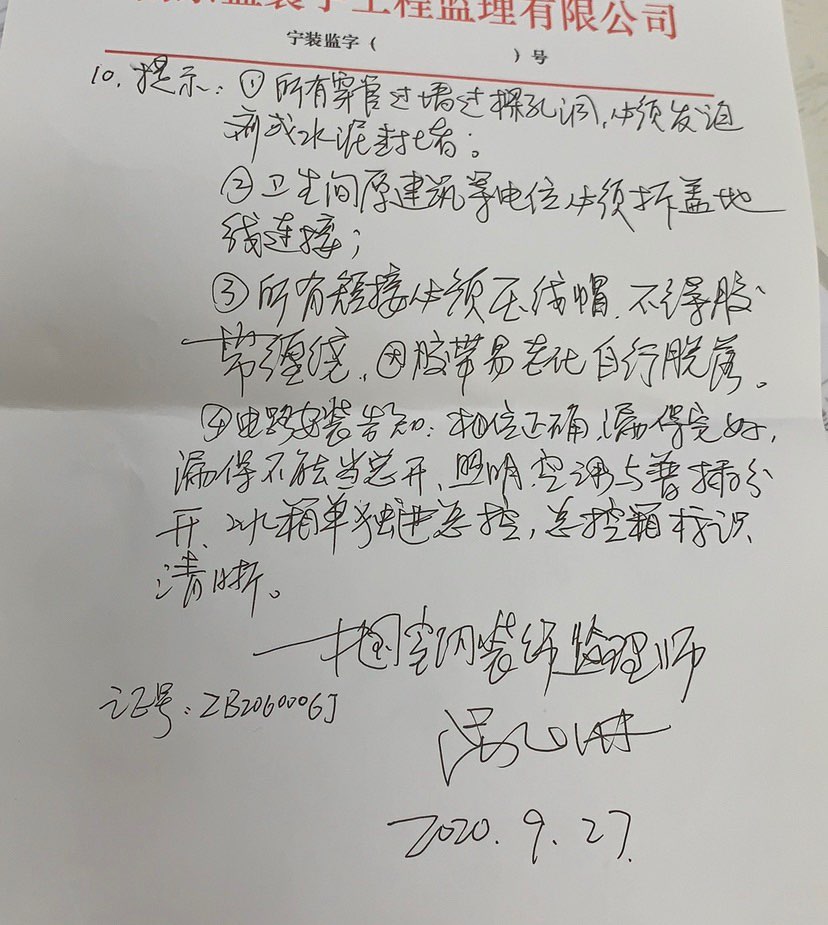 工程监理有限公司
宁装监字（ ）号
10.提示：①所有穿管过墙过探孔洞,必须发泡
剂或水泥封堵；
②卫生间原建筑等电位必须拆盖地
线连接；
③所有短接必须压线帽.不得胶
带缠绕,因胶带易老化自行脱落。
④电路安装告知：相位正确,漏保完好,
漏保不能当总开、照明.空调与普插分
开、冰箱单独进总控,总控箱标识
清晰。
中国室内装饰监理师
证号：ZB2060006J
2020.9.27.